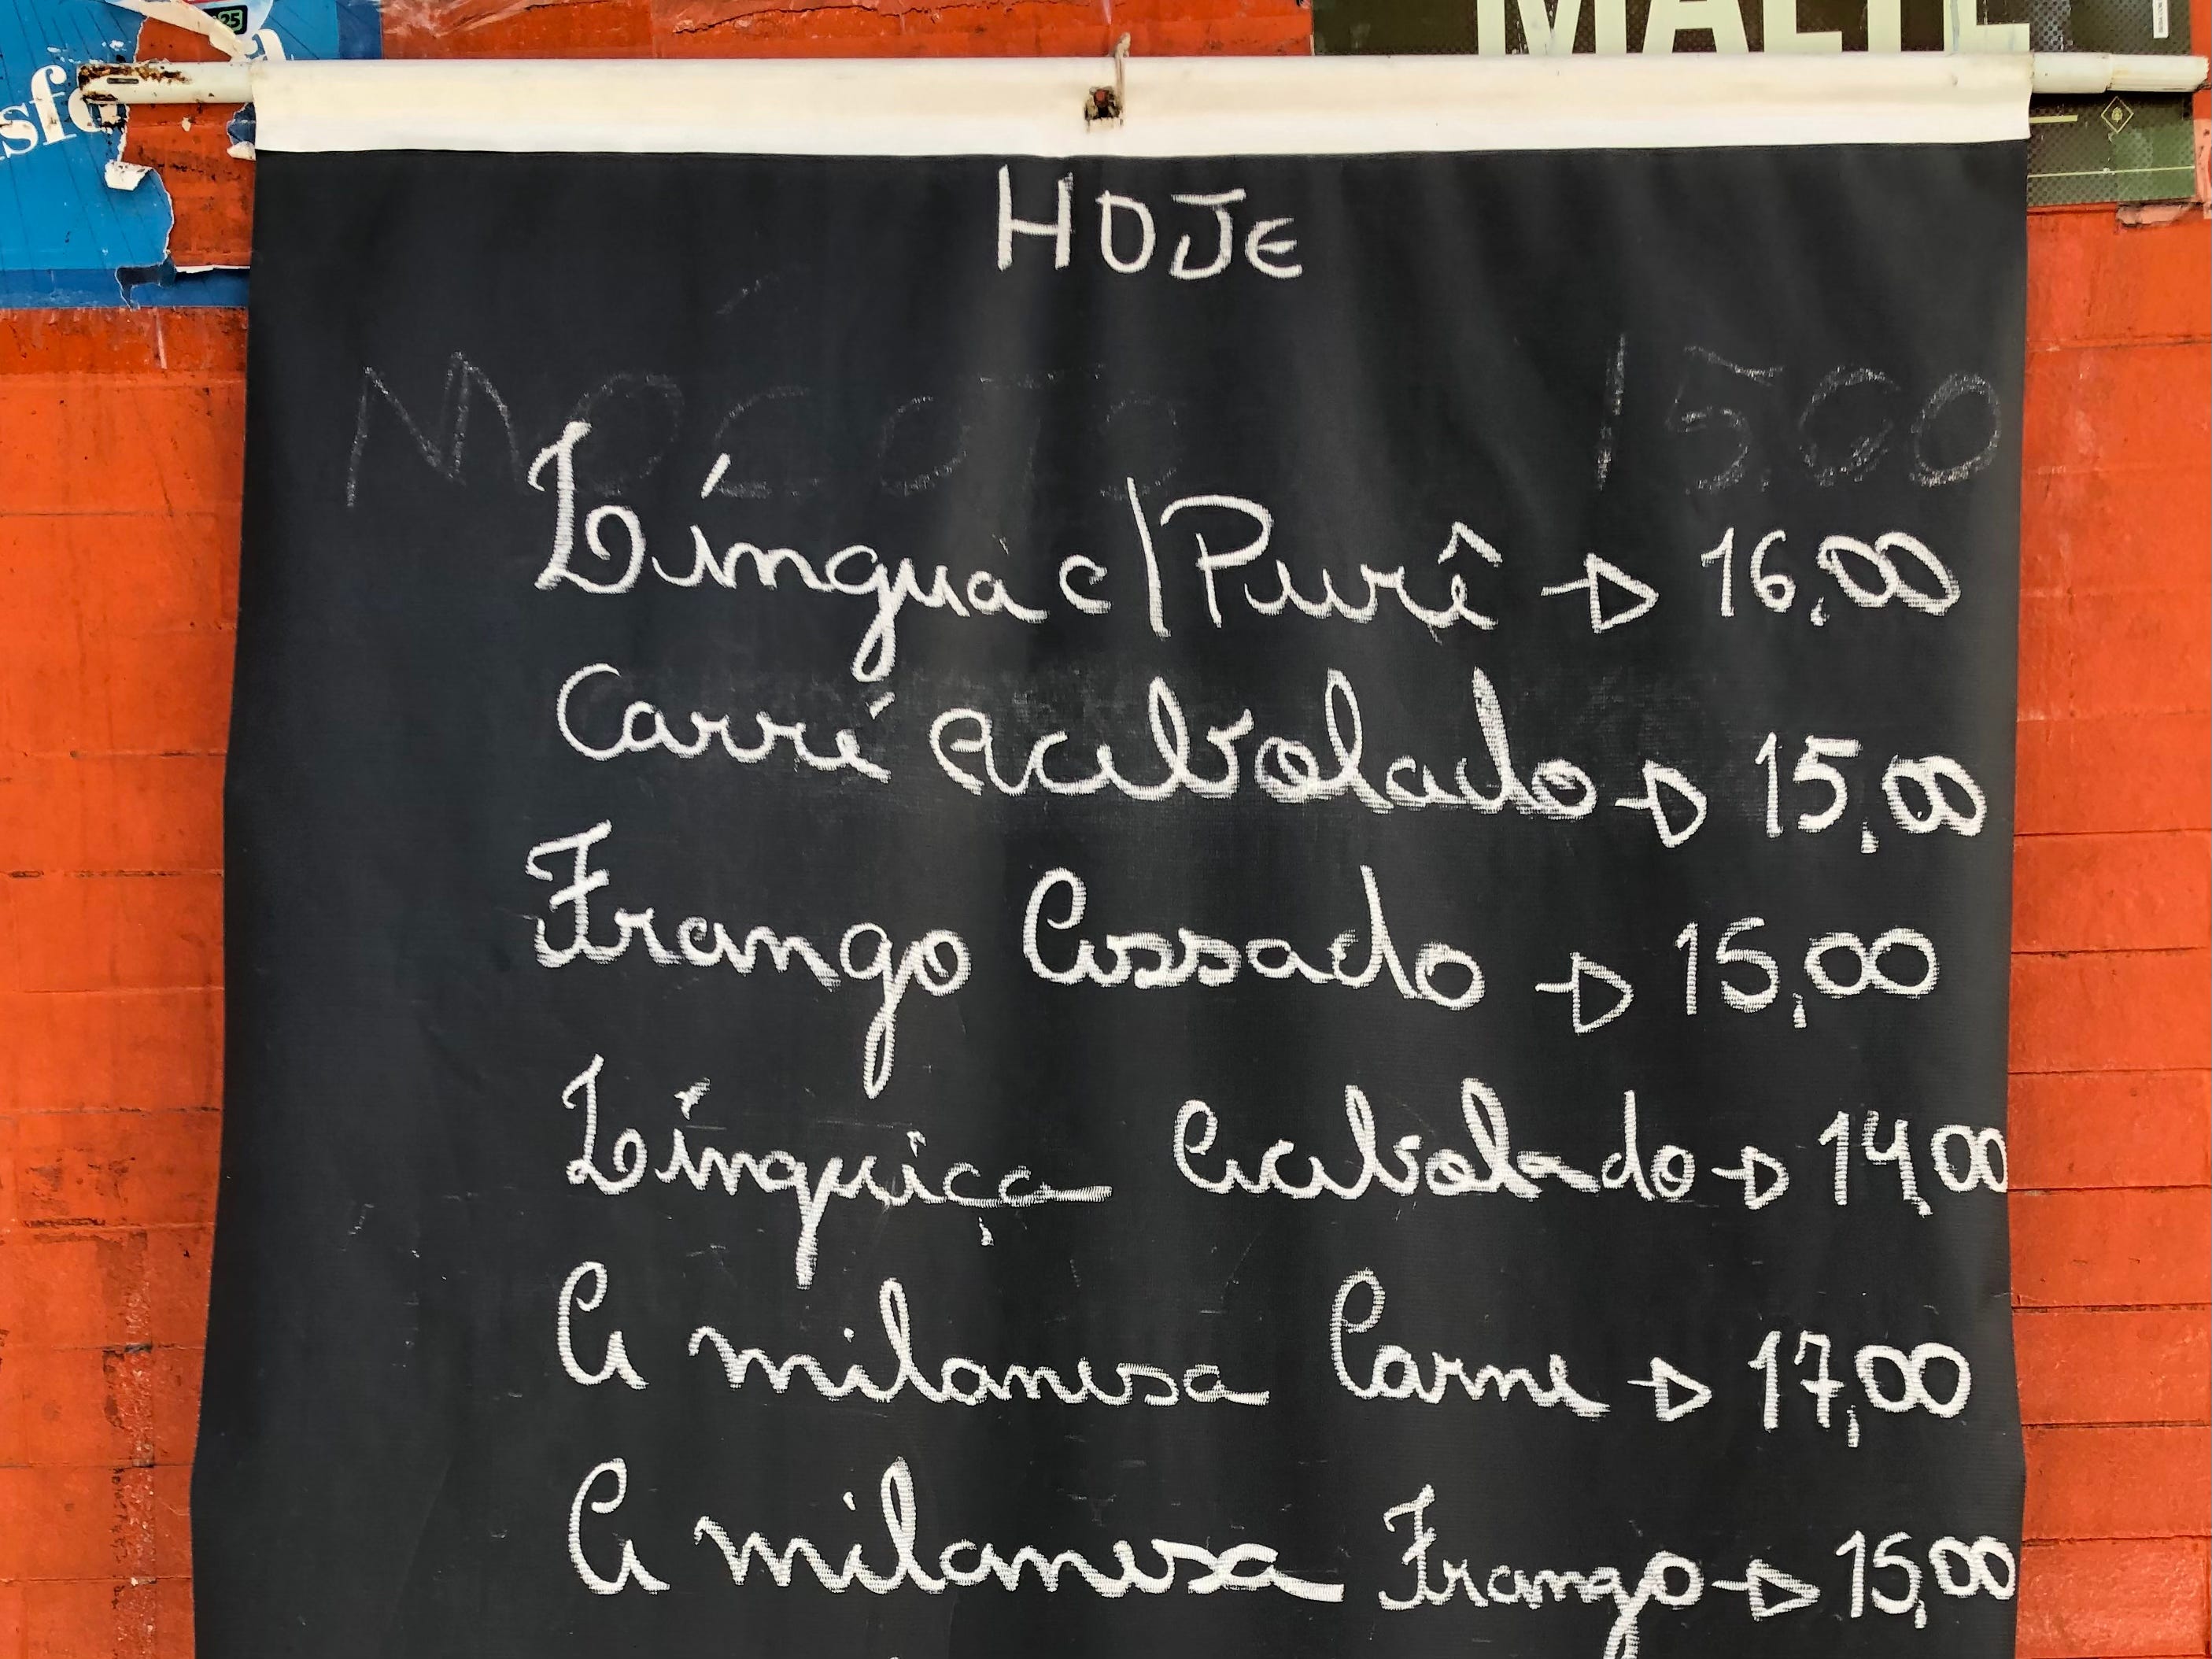 25
sfe
MALTE
HOJE
MOCOTO 15,00
Língua c/Purê → 16,00
Carré acebolado → 15,00
Frango Assado → 15,00
Línguiça acebolado → 14,00
A milanesa Carne → 17,00
A milanesa Frango → 15,00